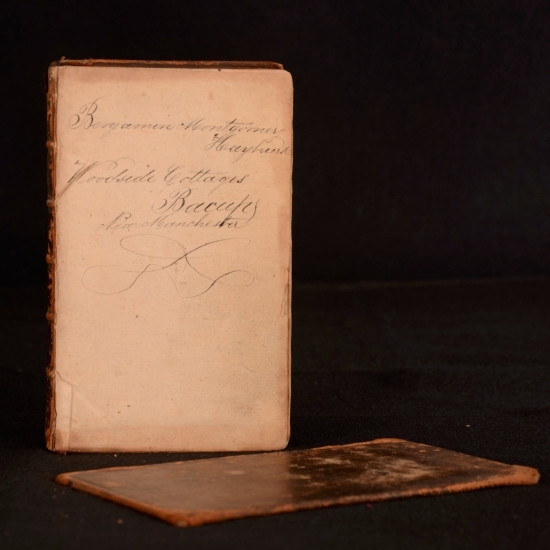 Benjamin Montgomery
Hayhurst
Woodside Cottages
Bacup
Near Manchester